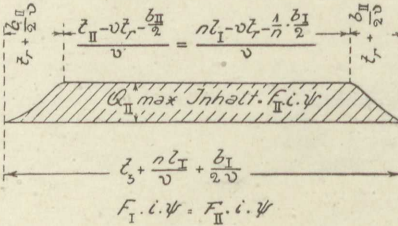 t_r + b_II/2v
(t_II - v t_r - b_II/2)/v = (n l_I - v t_r - 1/n · b_I/2)/v
t_r + b_II/2v
Q_II max Inhalt · F_II · i · ψ
t_3 + n l_I/v + b_I/2v
F_I · i · ψ = F_II · i · ψ